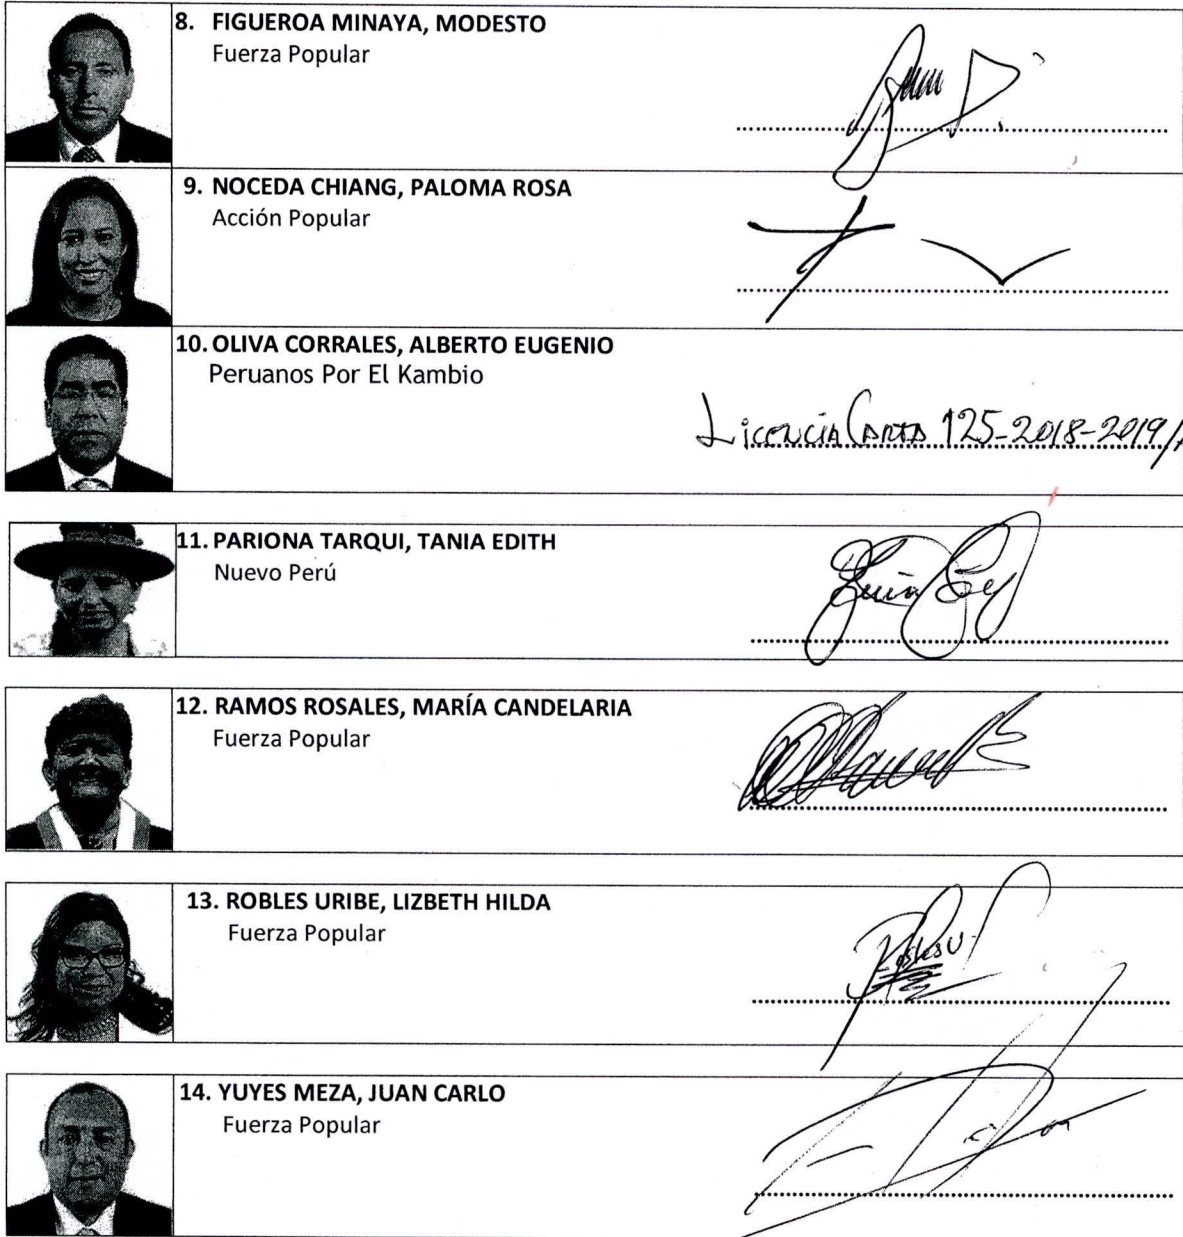 8. FIGUEROA MINAYA, MODESTO
Fuerza Popular
9. NOCEDA CHIANG, PALOMA ROSA
Acción Popular
10. OLIVA CORRALES, ALBERTO EUGENIO
Peruanos Por El Kambio
Licencia Carta 125-2018-2019/
11. PARIONA TARQUI, TANIA EDITH
Nuevo Perú
12. RAMOS ROSALES, MARÍA CANDELARIA
Fuerza Popular
13. ROBLES URIBE, LIZBETH HILDA
Fuerza Popular
14. YUYES MEZA, JUAN CARLO
Fuerza Popular